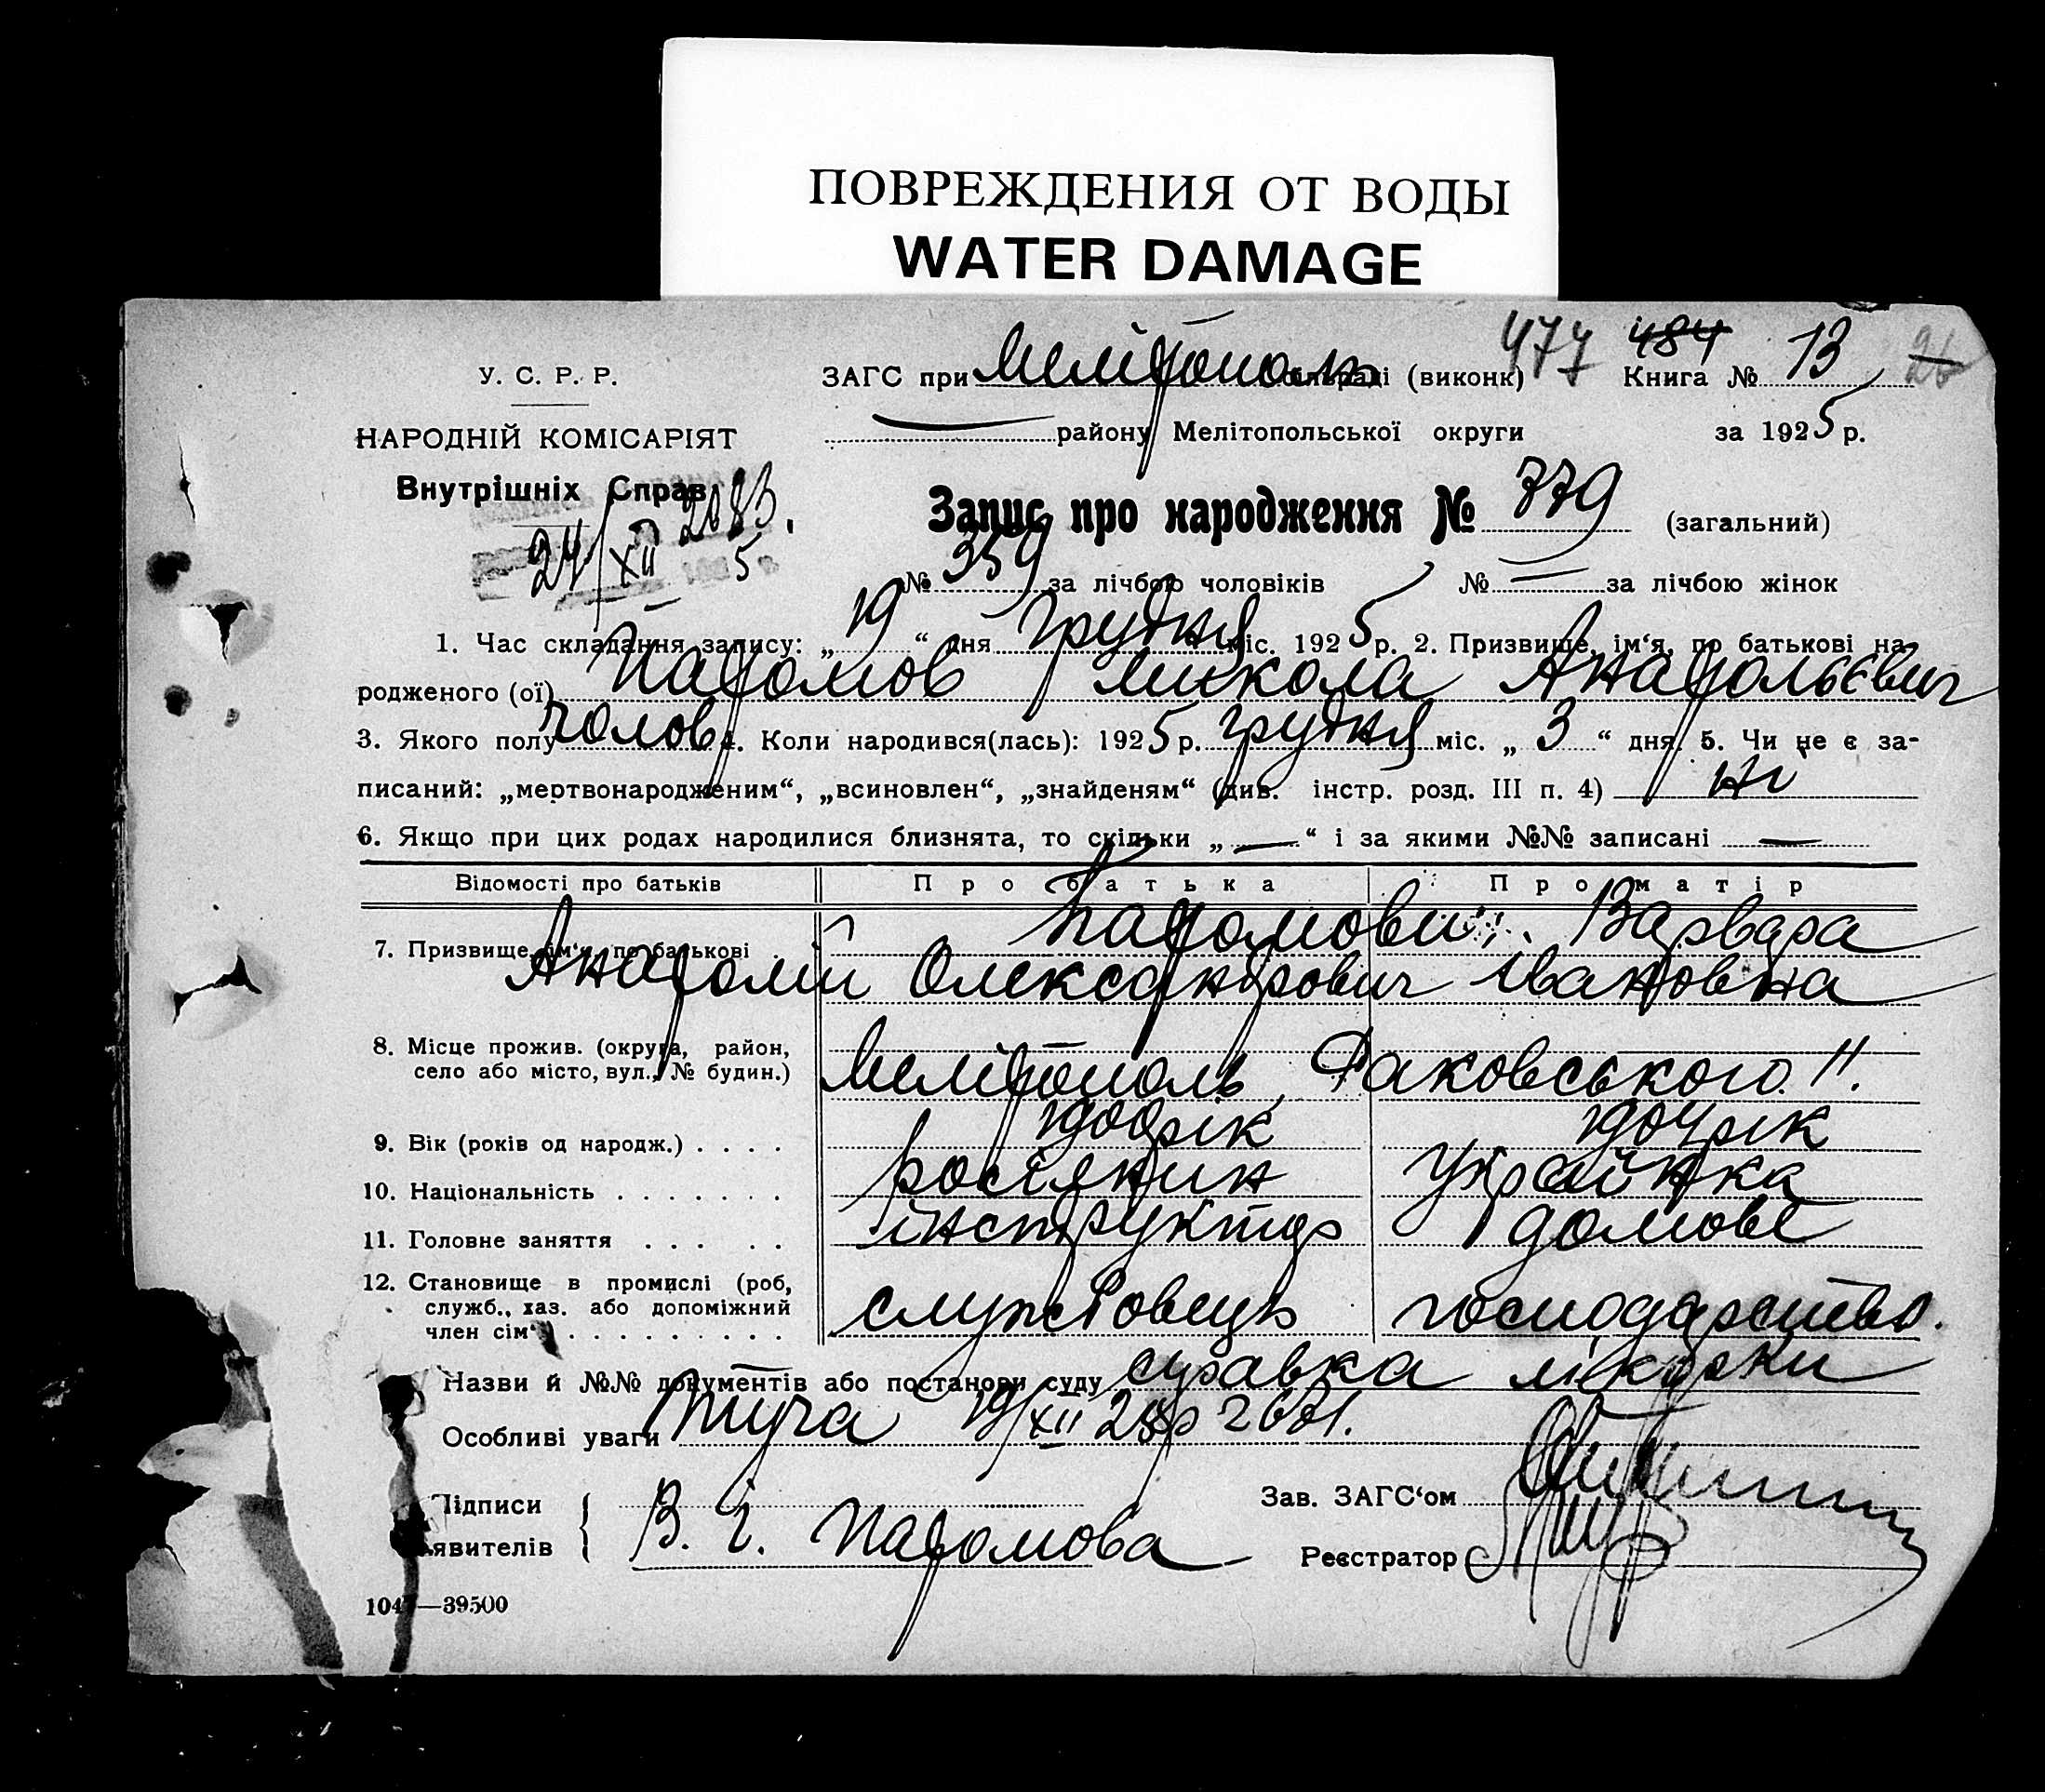 ПОВРЕЖДЕНИЯ ОТ ВОДЫ
WATER DAMAGE
477 484
У. С. Р. Р.
ЗАГС при Мелітополь сільраді (виконк) Книга № 13 26
НАРОДНІЙ КОМІСАРІЯТ
— району Мелітопольської округи за 1925 р.
Внутрішніх Справ
2083.
24/XII 5
Запис про народження № 779 (загальний)
№ 359 за лічбою чоловіків № — за лічбою жінок
1. Час складання запису: „19“ дня грудня міс. 1925 р. 2. Призвище, ім‘я, по батькові на-
родженого (ої) Патомов Микола Анатольєвич
3. Якого полу чолов 4. Коли народився(лась): 1925 р. грудня міс. „3“ дня. 5. Чи не є за-
писаний: „мертвонародженим“, „всиновлен“, „знайденям“ (див. інстр. розд. III п. 4) ні
6. Якщо при цих родах народилися близнята, то скільки „—“ і за якими №№ записані —
Відомості про батьків Про батька Про матір
7. Призвище, ім‘я, по батькові Патомови. Варвара
Анатолій Олександрович Івановна
8. Місце прожив. (округа, район,
село або місто, вул., № будин.) Мелітополь, Раковського 11.
9. Вік (років од народж.) . . . .
10. Національність . . . . . . . росіянин Українка
11. Головне заняття . . . . . інструктор домове
12. Становище в промислі (роб,
служб., хаз. або допоміжний
член сім‘ї) . . . . . . . . . службовець господарство.
Назви й №№ документів або постанови суду справка лікарки
Особливі уваги 19/XII 25р
Підписи
явителів В. І. Патомова
Зав. ЗАГС‘ом
Реєстратор
1047—39500